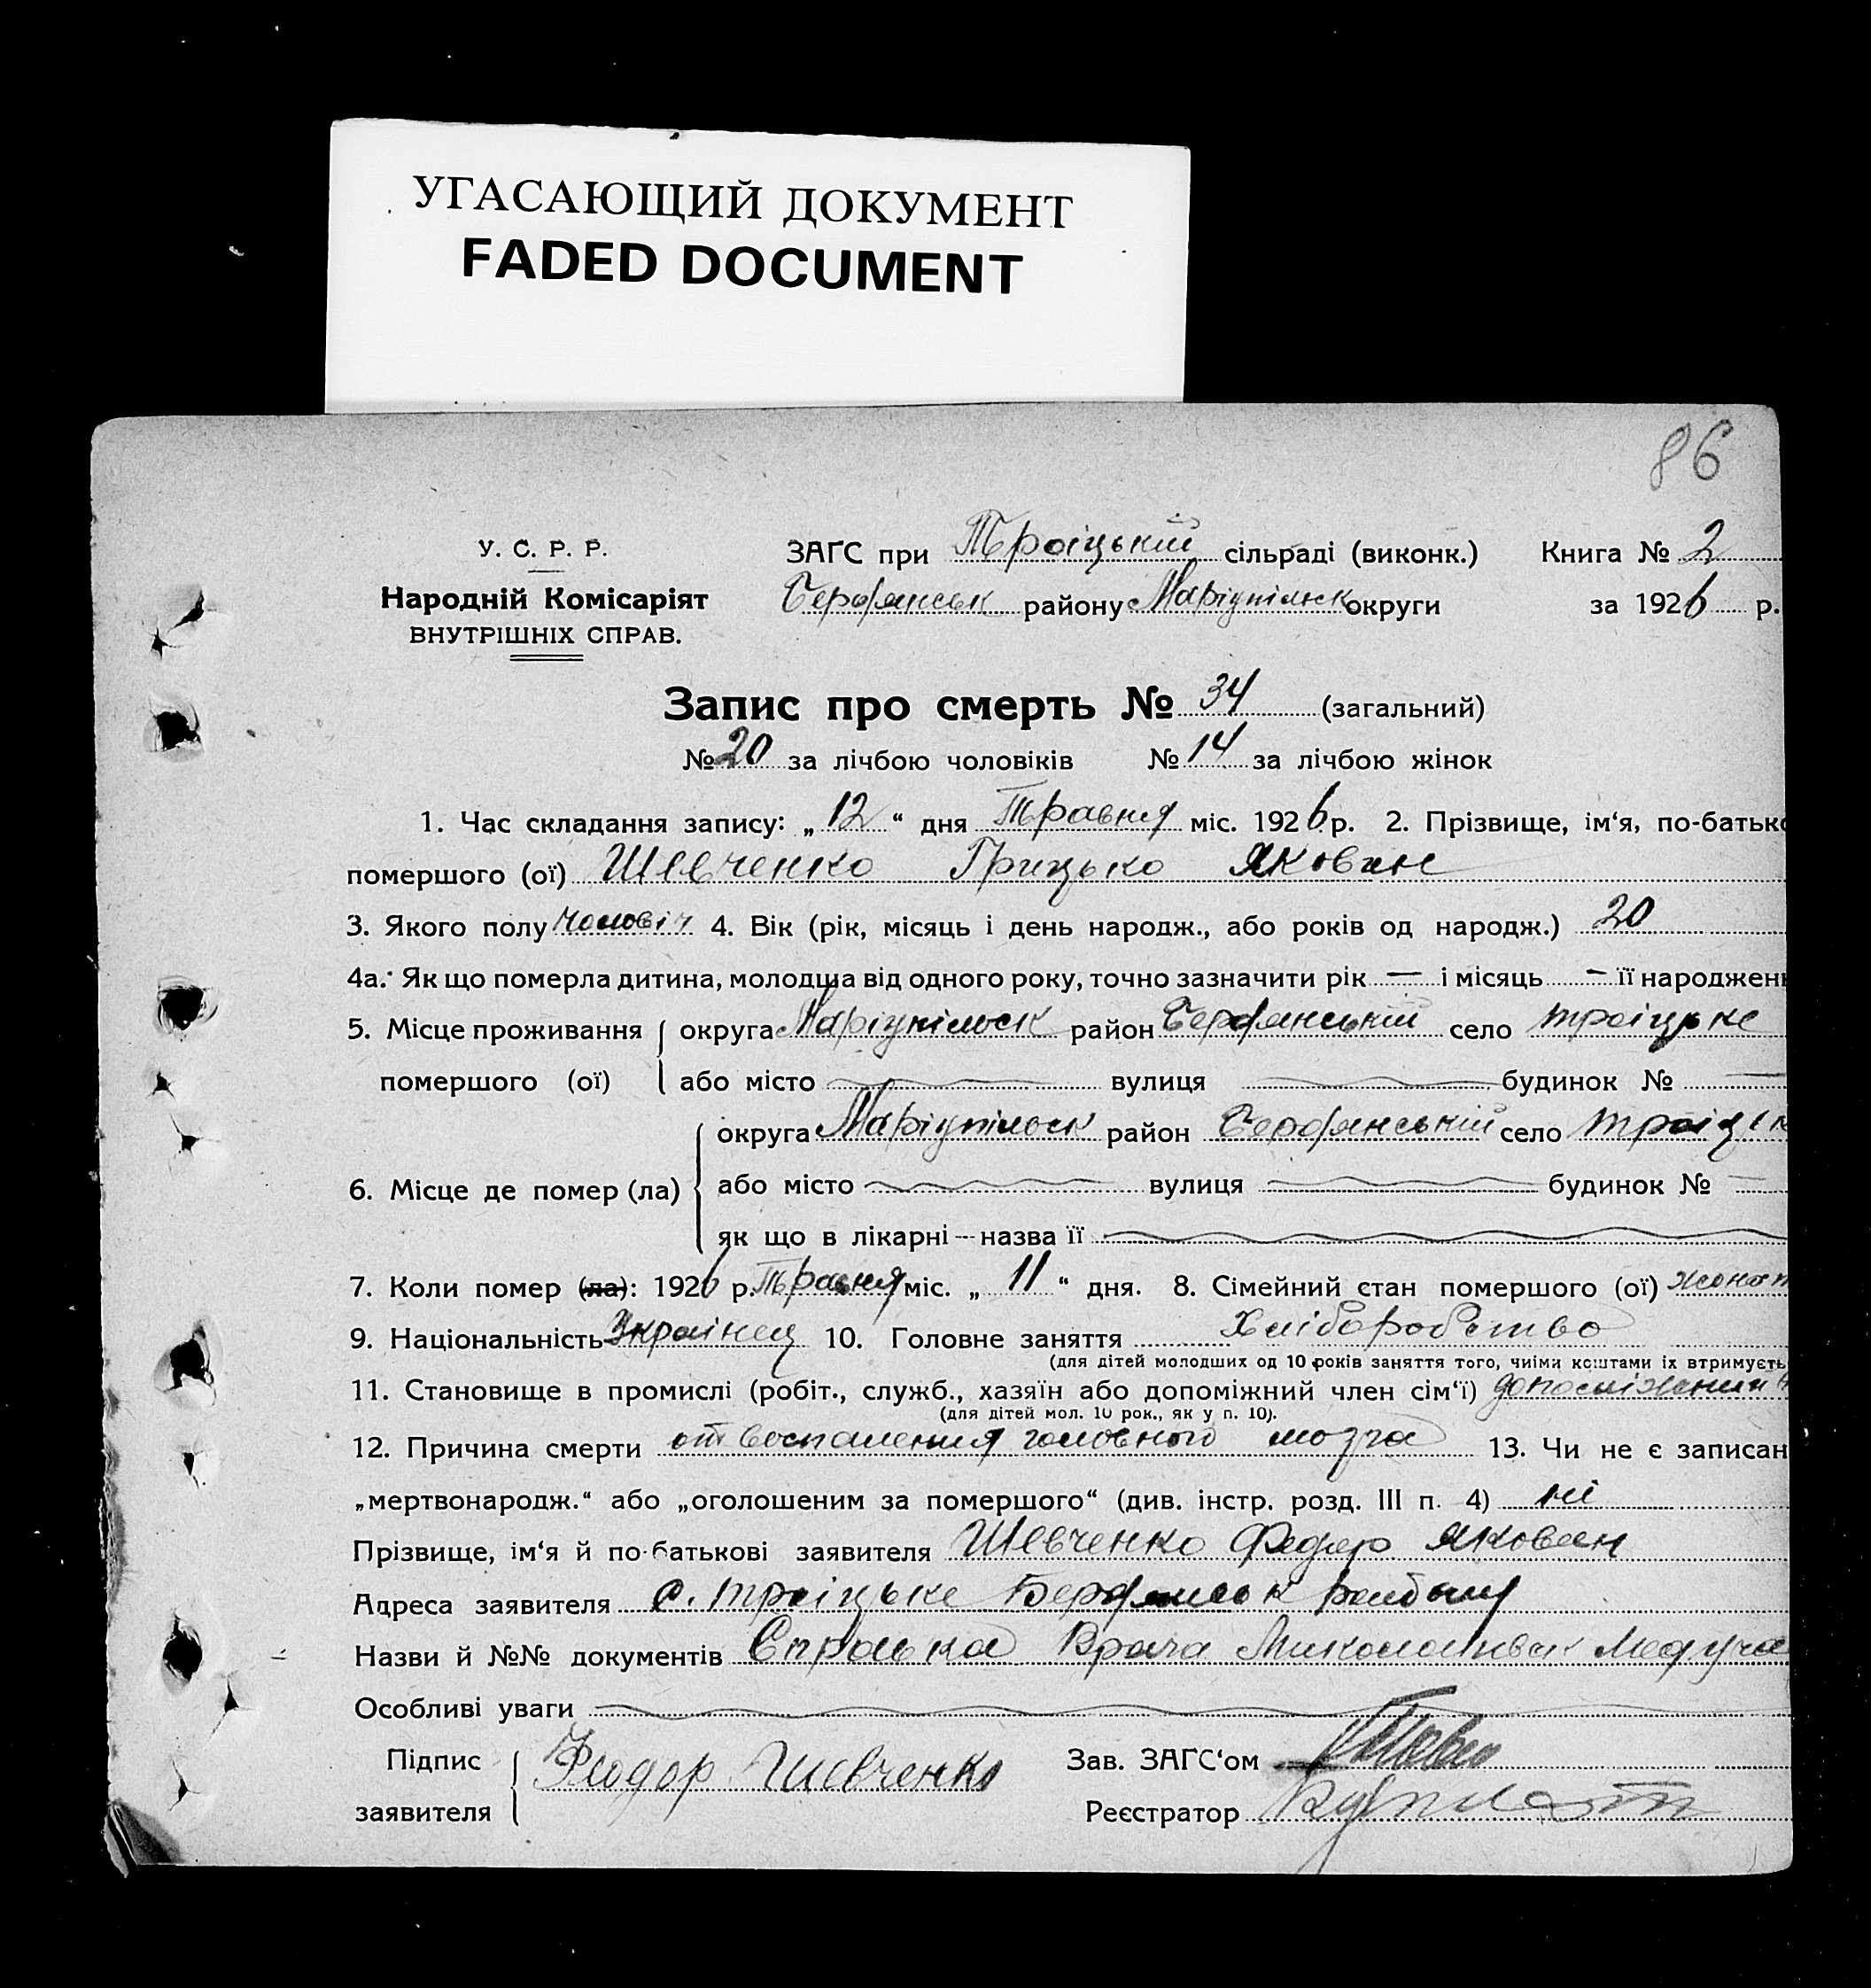 УГАСАЮЩИЙ ДОКУМЕНТ
FADED DOCUMENT
86
У. С. Р. Р.
Народній Комісаріят
ВНУТРІШНІХ СПРАВ.
ЗАГС при Троіцькій сільраді (виконк.) Книга № 2
Бердянськ району Маріупільск округи за 1926 р.
Запис про смерть № 34 (загальний)
№ 20 за лічбою чоловіків № 14 за лічбою жінок
1. Час складання запису: „ 12 “ дня Травня міс. 1926 р. 2. Прізвище, ім‘я, по-батьк
помершого (ої) Шевченко Грицько Якован
3. Якого полу чоловіч 4. Вік (рік, місяць і день народж., або років од народж.) 20
4а. Як що померла дитина, молодша від одного року, точно зазначити рік — і місяць — її народжен
5. Місце проживання округа Маріупільск район Бердянській село троіцьке
помершого (ої) або місто вулиця будинок №
округа Маріупільск район Бердянській село троіцьк
6. Місце де помер (ла) або місто вулиця будинок №
як що в лікарні — назва її
7. Коли помер (ла): 1926 р. Травня міс. „ 11 “ дня. 8. Сімейний стан помершого (ої) жонат
9. Національність Украінец 10. Головне заняття Хліборобство
(для дітей молодших од 10 років заняття того, чиїми коштами їх втримуєть
11. Становище в промислі (робіт., служб., хазяїн або допоміжний член сім‘ї)
(для дітей мол. 10 рок., як у п. 10).
12. Причина смерти от воспаления головного мозга 13. Чи не є записан
„мертвонародж.“ або „оголошеним за помершого“ (див. інстр. розд. III п. 4) ні
Прізвище, ім‘я й по-батькові заявителя Шевченко Федор Якован
Адреса заявителя с. троіцьке Бердянськ
Назви й №№ документів Справка Врача
Особливі уваги
Підпис заявителя Феодор Шевченко Зав. ЗАГС‘ом
Реєстратор